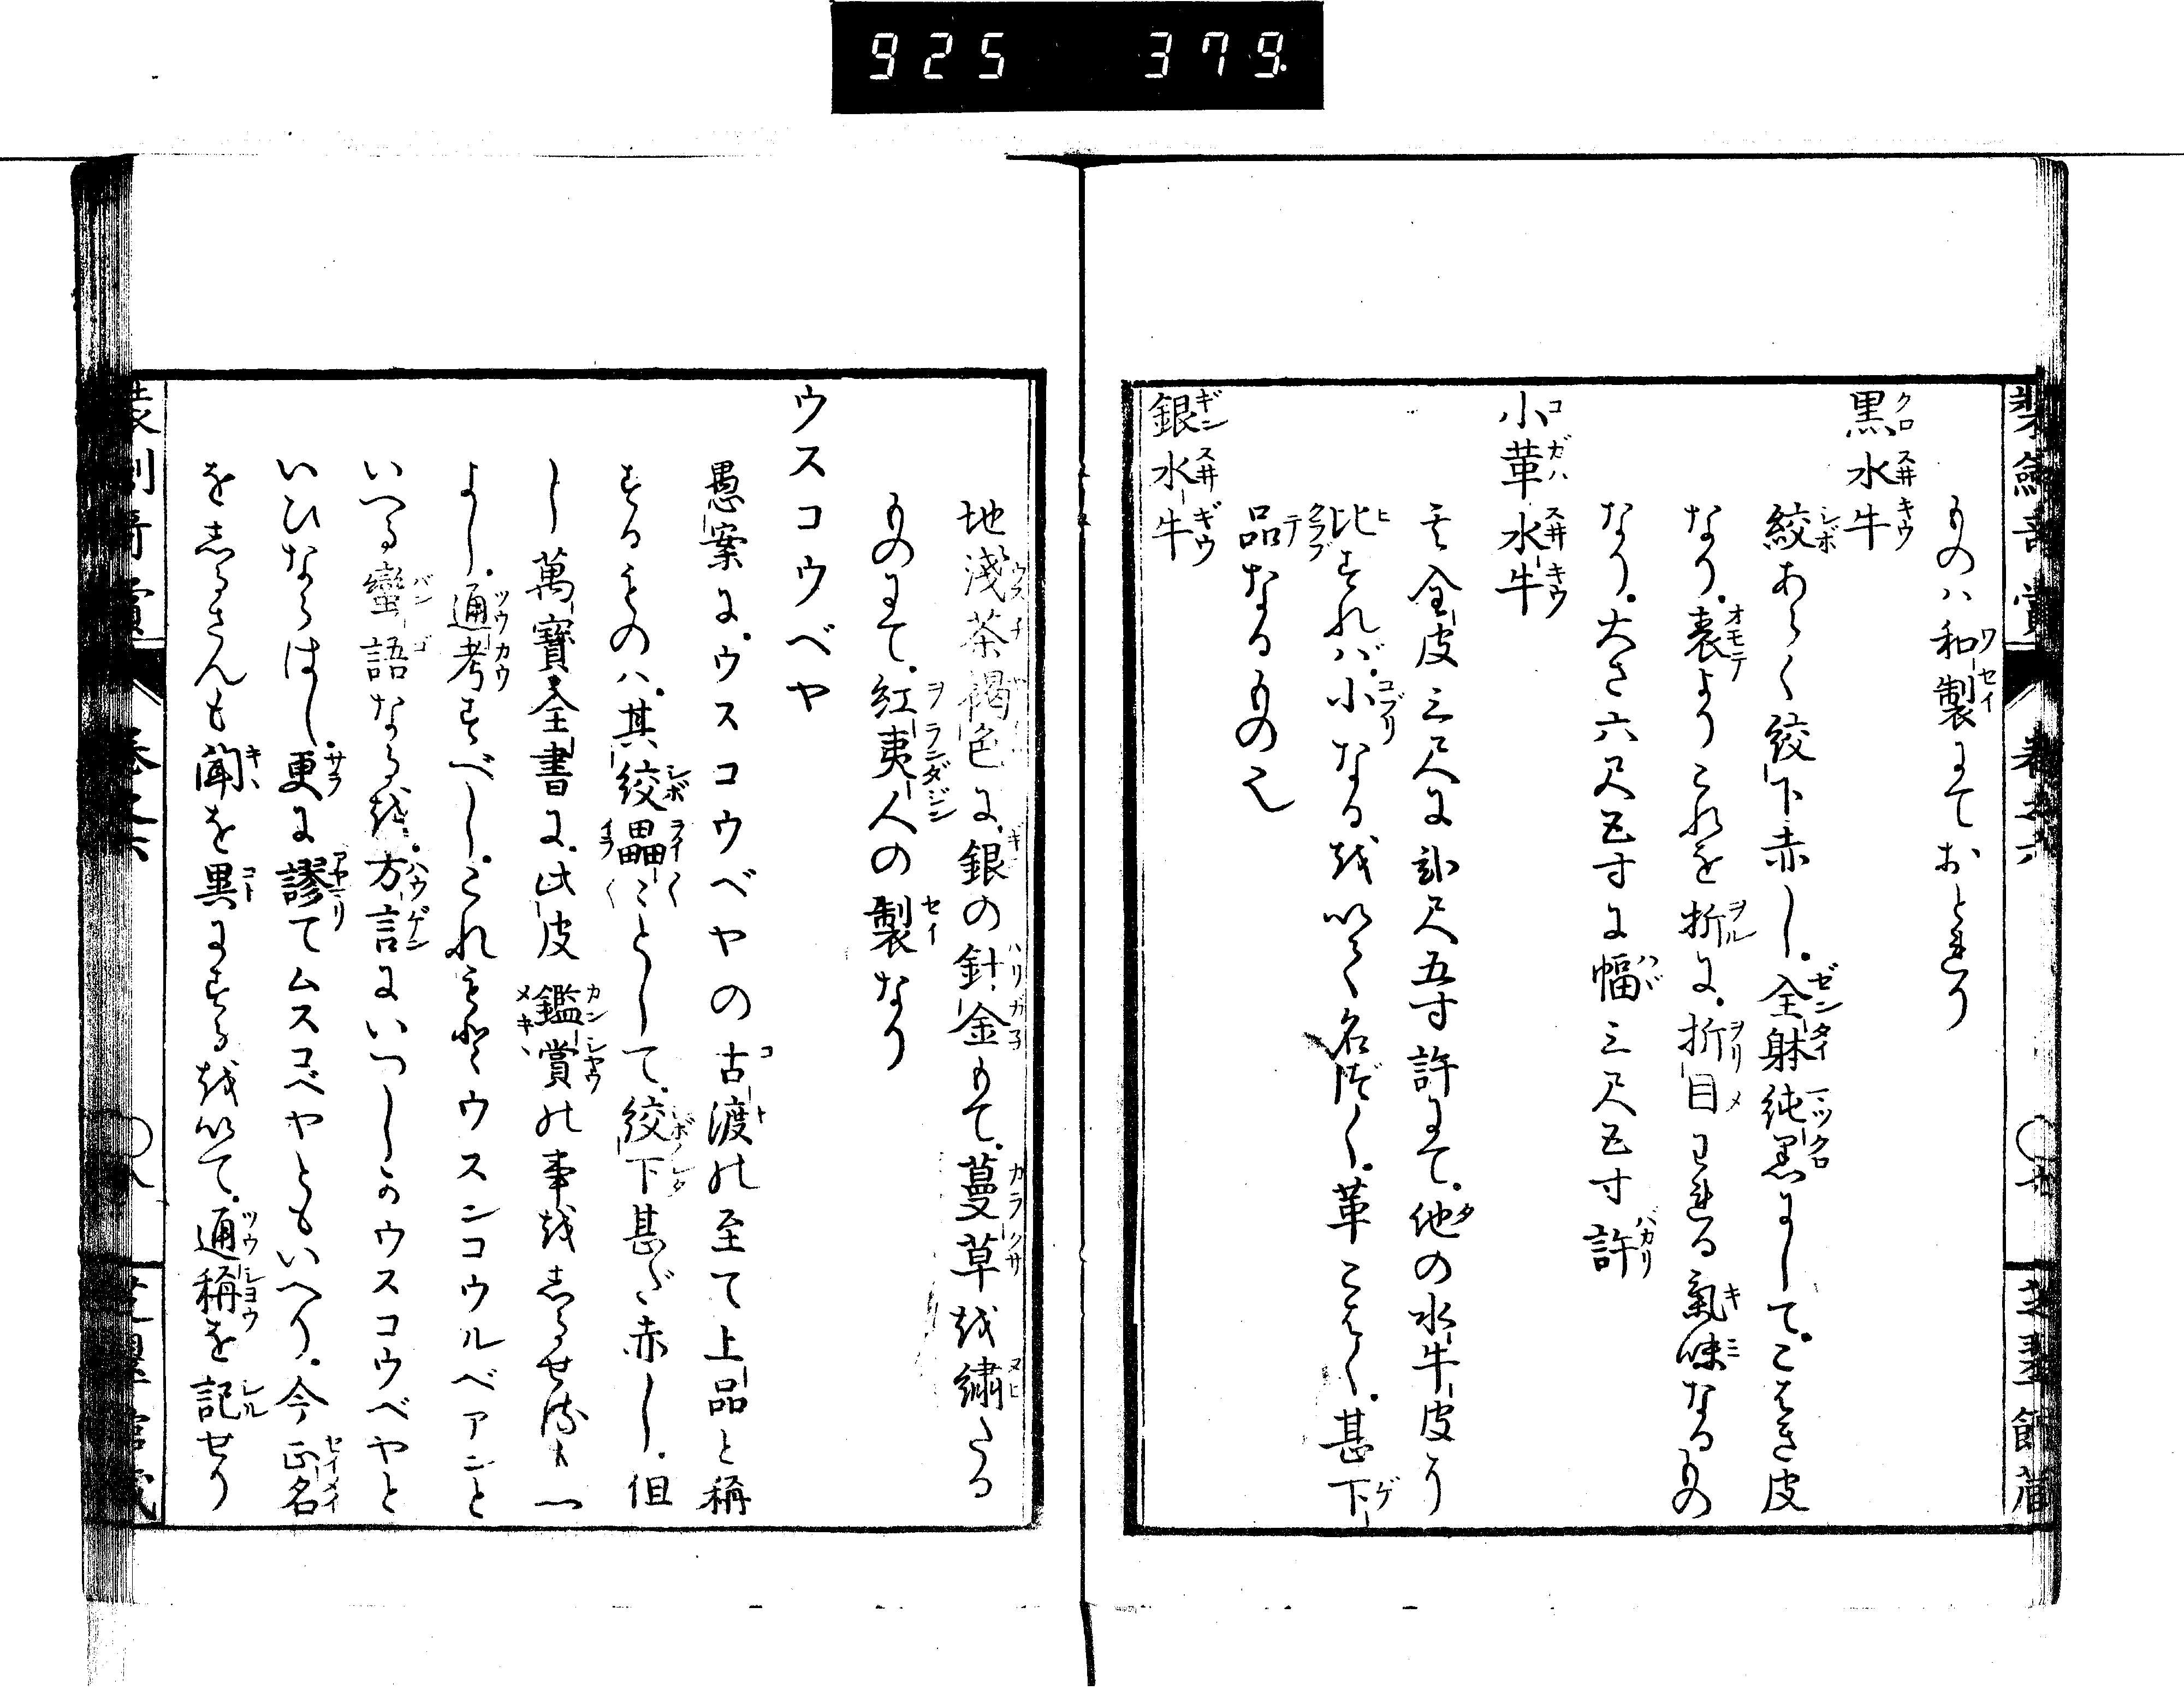 925 379
ものハ和製にておとれり
黒水牛
絞あらく絞下赤し。全躰純黒にして。こはき皮
なり。表よりこれを折に。折目われる氣味なるもの
なり。大さ六尺五寸に幅三尺五寸許
小革水牛
全皮三尺に弐尺五寸許にて。他の水牛皮より
比すれバ。小なるを以て名づく。革こはく。甚下
品なるもの也
銀水牛
地淺茶褐色に。銀の針金もて。蔓草を繡たる
ものにて。紅夷人の製なり
ウスコウベヤ
愚案に。ウスコウベヤの古渡の至て上品と稱
するものハ。其絞畾〻として。絞下甚ダ赤し。但
し萬寳全書に。此皮鑑賞の事をしるせる
よし。通考すべし。これもとウスンコウルベアンと
いへる蠻語なるを。方言にいつしかウスコウベヤと
いひならはし。更に謬てムスコベヤともいへり。今正名
をしるさんも聞を異にするを以て。通稱を記せり